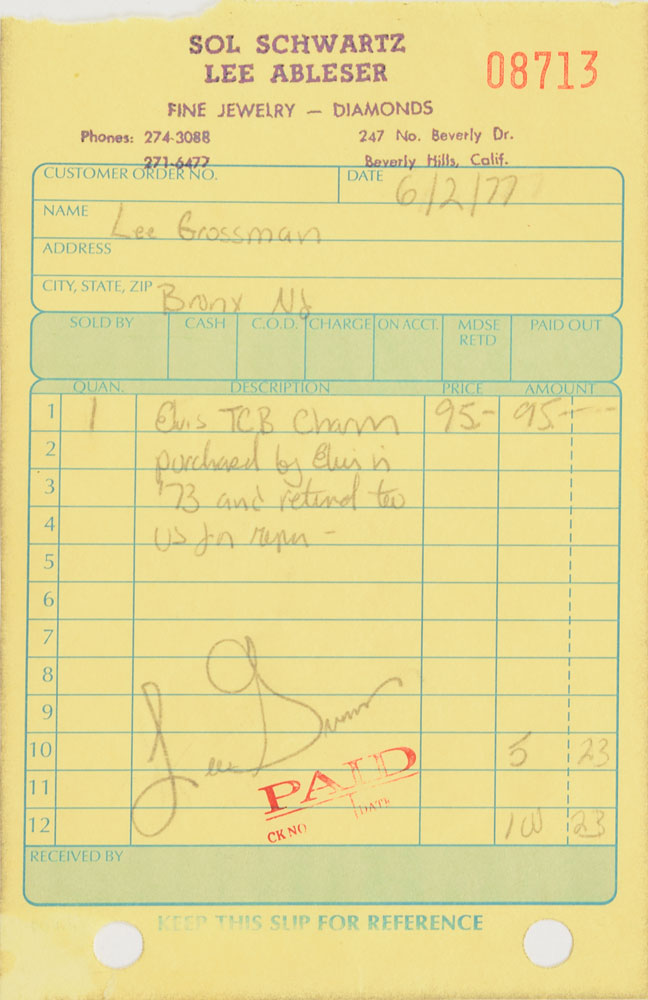 SOL SCHWARTZ
LEE ABLESER
08713
FINE JEWELRY — DIAMONDS
Phones: 274-3088
247 No. Beverly Dr.
271-6477
Beverly Hills, Calif.
CUSTOMER ORDER NO.
DATE 6/2/77
NAME Lee Grossman
ADDRESS
CITY, STATE, ZIP Bronx NY
SOLD BY CASH C.O.D. CHARGE ON ACCT. MDSE RETD PAID OUT
QUAN. DESCRIPTION PRICE AMOUNT
1 1 Elvis TCB Charm 95- 95-
2 purchased by Elvis in
3 '73 and returned to
4 us for repair -
5
6
7
8
9
Lee Grossman
10 5 23
PAID
11
DATE
CK NO
12 100 23
RECEIVED BY
KEEP THIS SLIP FOR REFERENCE